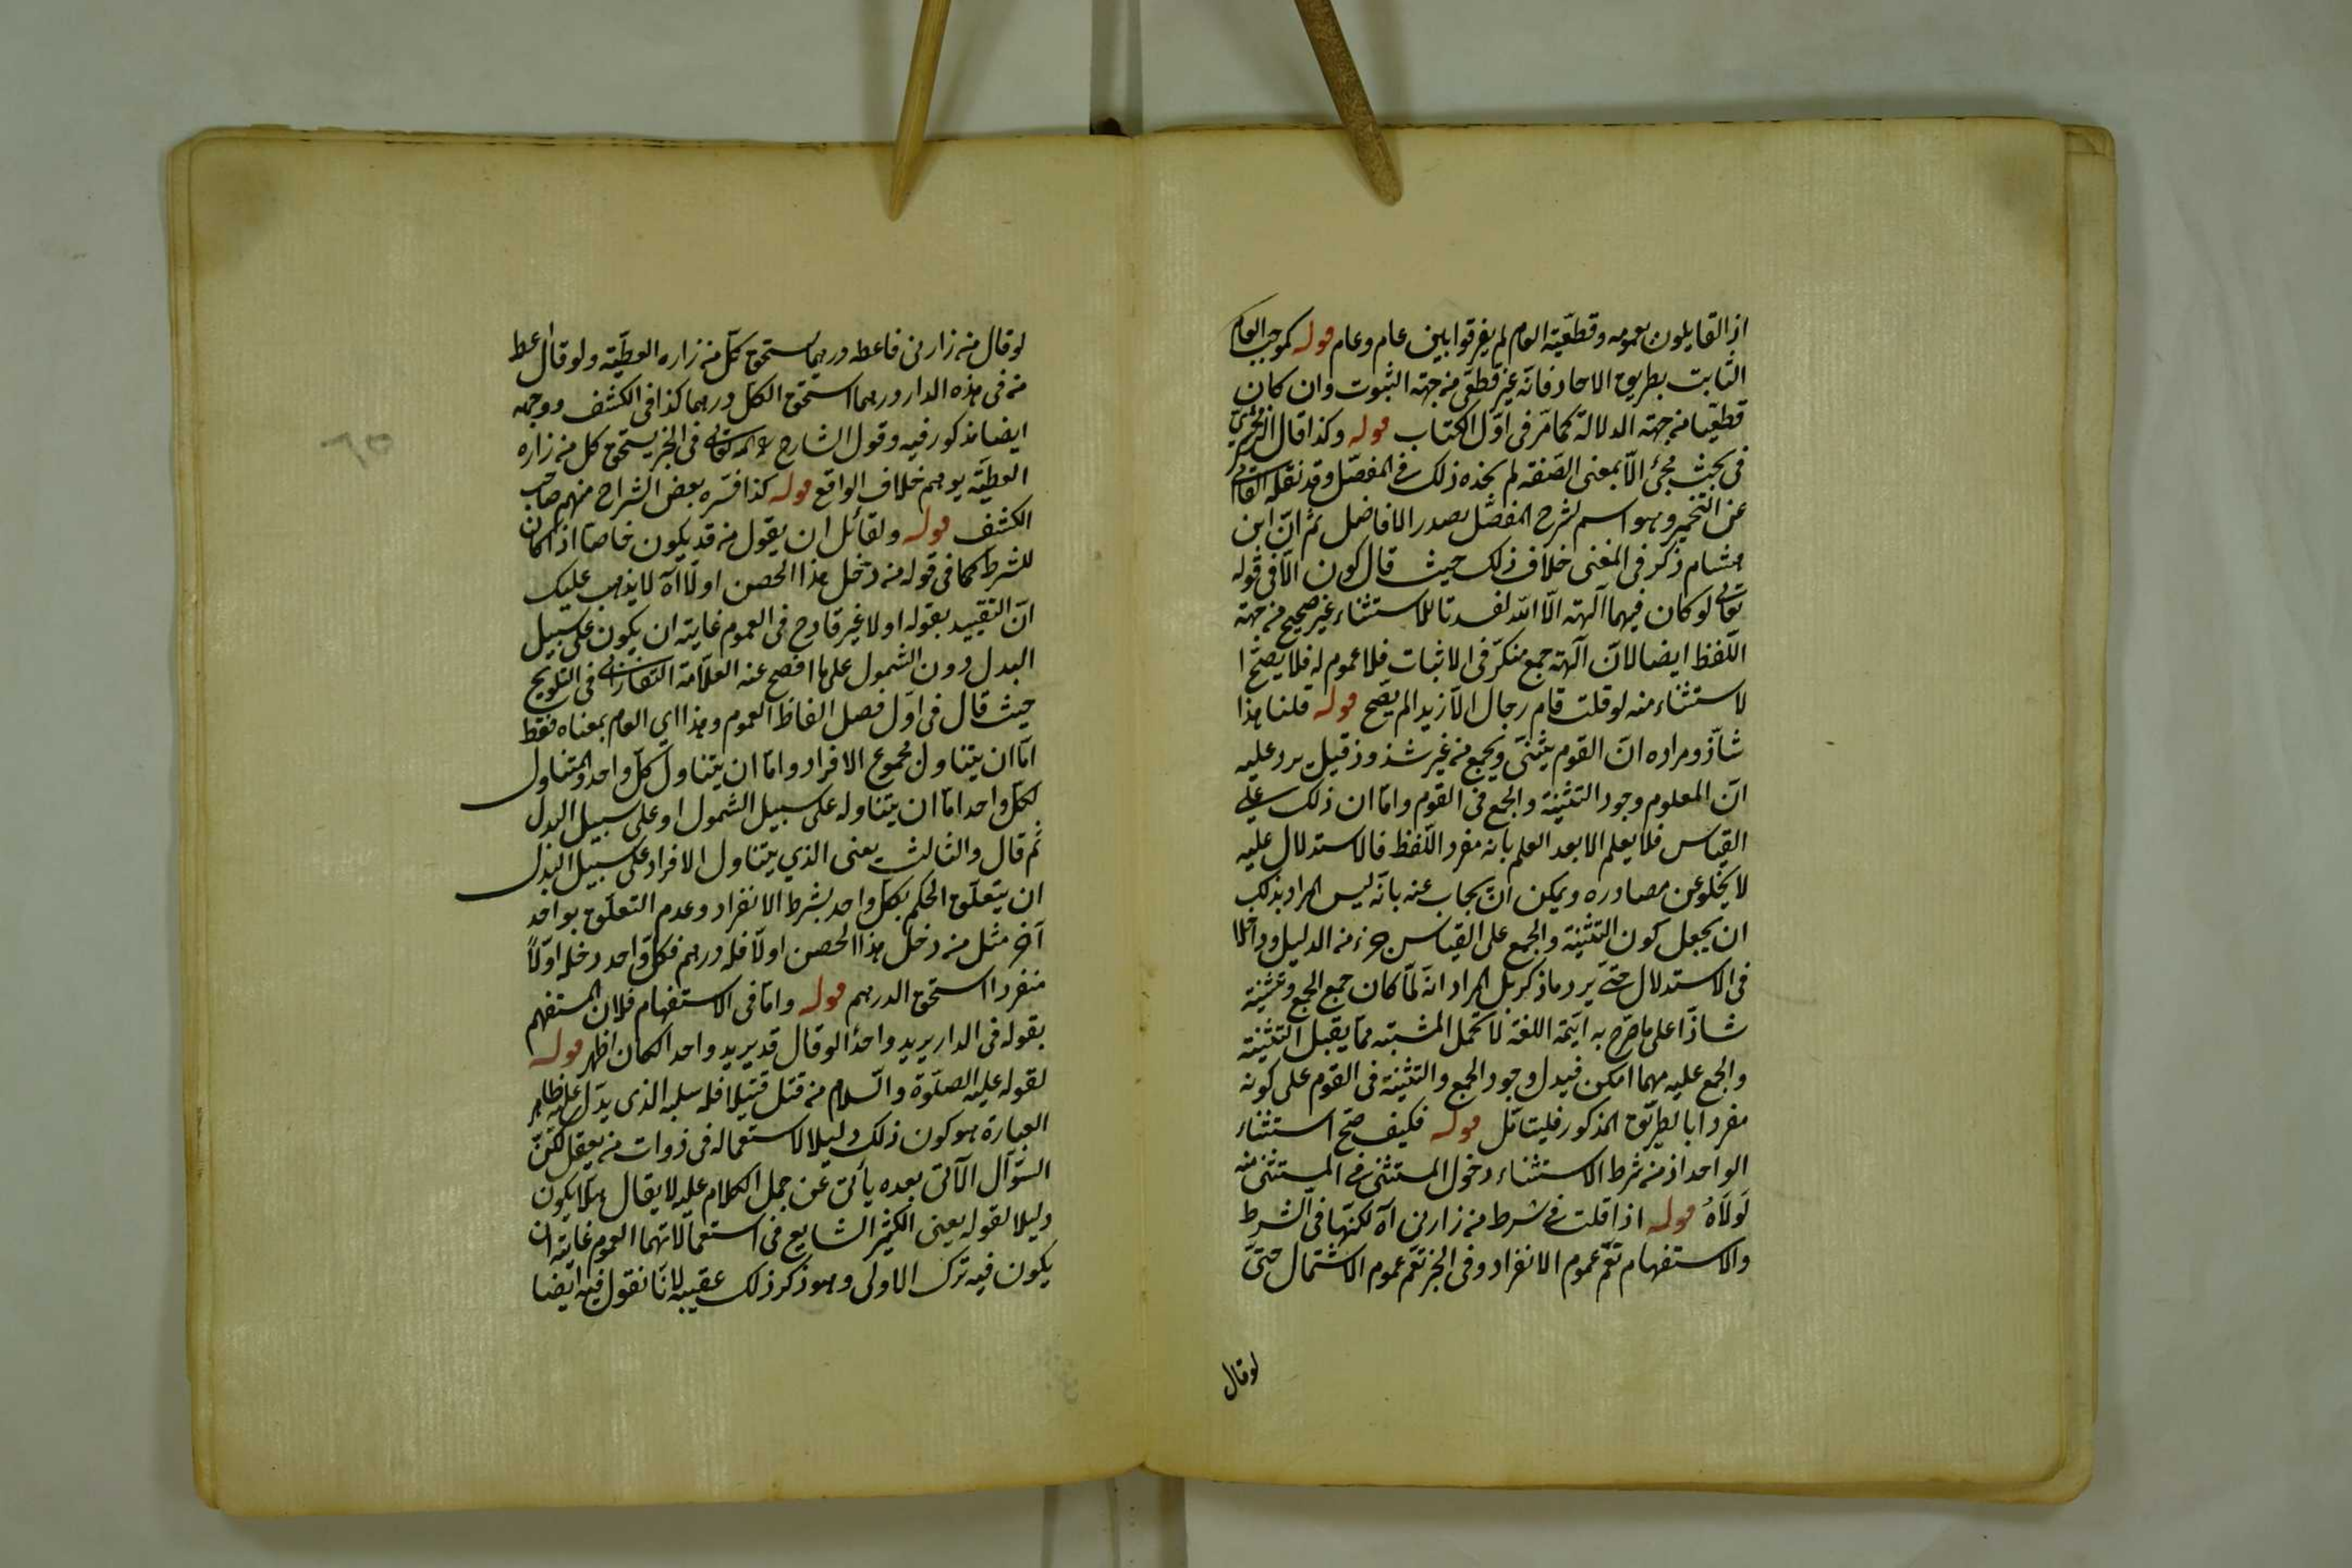 اذ القايلون بعمومه وقطعيّة العام لم يفرقوا بين عام وعام قوله كموجب العام
الثابت بطريق الاحاد فانّه غير قطعيّ من جهة الثبوت وان كان
قطعيّا من جهة الدلالة كما مرّ فى اوّل الكتاب قوله وكذا قال الزمخشري
فى بحث مجئ الّا بمعنى الصّفة لم نجده ذلك فى المفصّل وقد نقله القاآنى
عن التخمير وهو اسم لشرح المفصّل لصدر الافاضل ثم انّ ابن
هشام ذكر فى المغنى خلاف ذلك حيث قال كون الّا فى قوله
تعالى لو كان فيهما آلهة الّا اللّه لفسدتا للاستثناء غير صحيح من جهة
اللّفظ ايضا لانّ آلهة جمع منكّر فى الاثبات فلا عموم له فلا يصحّ ا
لاستثناء منه لو قلت قام رجال الّا زيدا لم يصحّ قوله قلنا هذا
شاذّ ومراده انّ القوم يثنّى ويجمع من غير شذوذ قيل يرد عليه
انّ المعلوم وجود التثنية والجمع فى القوم وامّا ان ذلك على
القياس فلا يعلم الا بعد العلم بانه مفرد اللّفظ فالاستدلال عليه
لا يخلو عن مصادره ويمكن ان يجاب عنه بانّه ليس المراد بذلك
ان يجعل كون التثنية والجمع على القياس جزء من الدليل وداخلا
فى الاستدلال حتّى يرد ما ذكر بل المراد انّه لمّا كان جمع الجمع وتثنيته
شاذّا على ما صرّح به ايّمة اللغة لا تحمل المشتبه ممّا يقبل التثنية
والجمع عليه مهما امكن فيدل وجود الجمع والتثنية فى القوم على كونه
مفردا بالطريق المذكور فليتأمّل قوله فكيف صحّ استثناء
الواحد اذ من شرط الاستثناء دخول المستثنى فى المستثنى منه
لَولَاهُ قوله اذا قلت فى شرط من زارنى آه لكنّها فى الشرط
والاستفهام تعّم عموم الانفراد وفى الخبر تعّم عموم الاشتمال حتّى
لو قال
لو قال من زارنى فاعطه درهما يستحق كلّ من زاره العطيّة ولو قال اعط
من فى هذه الدار درهما استحق الكلّ درهما كذا فى الكشف ووجهه
ايضا مذكور فيه وقول الشارح فى الخبر يستحق كل من زاره
العطيّة يوهم خلاف الواقع قوله كذا فسّره بعض الشراح منهم صاحب
الكشف قوله ولقائل ان يقول من قد يكون خاصا اذا كان
للشرط كما فى قوله من دخل هذا الحصن اولا آه لا يذهب عليك
انّ التقييد بقوله اولا غير قادح فى العموم غايته ان يكون على سبيل
البدل دون الشمول على ما افصح عنه العلّامة التفتازانى فى التلويح
حيث قال فى اوّل فصل الفاظ العموم وهذا اى العام بمعناه فقط
امّا ان يتناول مجموع الافراد وامّا ان يتناول كلّ واحد والمتناول
لكلّ واحد امّا ان يتناوله على سبيل الشمول او على سبيل البدل
ثم قال والثالث يعنى الذي يتناول الافراد على سبيل البدل
ان يتعلّق الحكم بكلّ واحد بشرط الانفراد وعدم التعلّق بواحد
آخر مثل من دخل هذا الحصن اولا فله درهم فكلّ واحد دخله اوّلاً
منفردا استحق الدرهم قوله وامّا فى الاستفهام فلان المستفهم
بقوله فى الدار يريد واحدا لو قال قد يريد واحد الكان اظهر قوله
لقوله عليه الصلوة والسّلام من قتل قتيلا فله سلبه الذى يدّل عليه ظاهر
العبارة هو كون ذلك دليلا لاستعماله فى ذوات من يعقل لكنّ
السؤآل الآتى بعده يأبى عن حمل الكلام عليه لا يقال هلّا يكون
دليلا لقوله يعنى الكثير الشايع فى استعمالاتهما العموم غايته ان
يكون فيه ترك الاولى وهو ذكر ذلك عقيبه لانّا نقول فيه ايضا